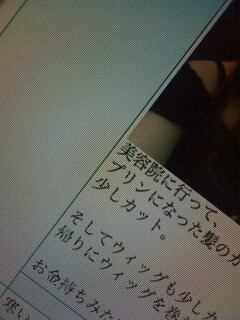 美容院に行って、
プリンになった髪のカ
少しカット。
そしてウィッグも少しカ
帰りにウィッグを巻き
お金持ちみた
寒い